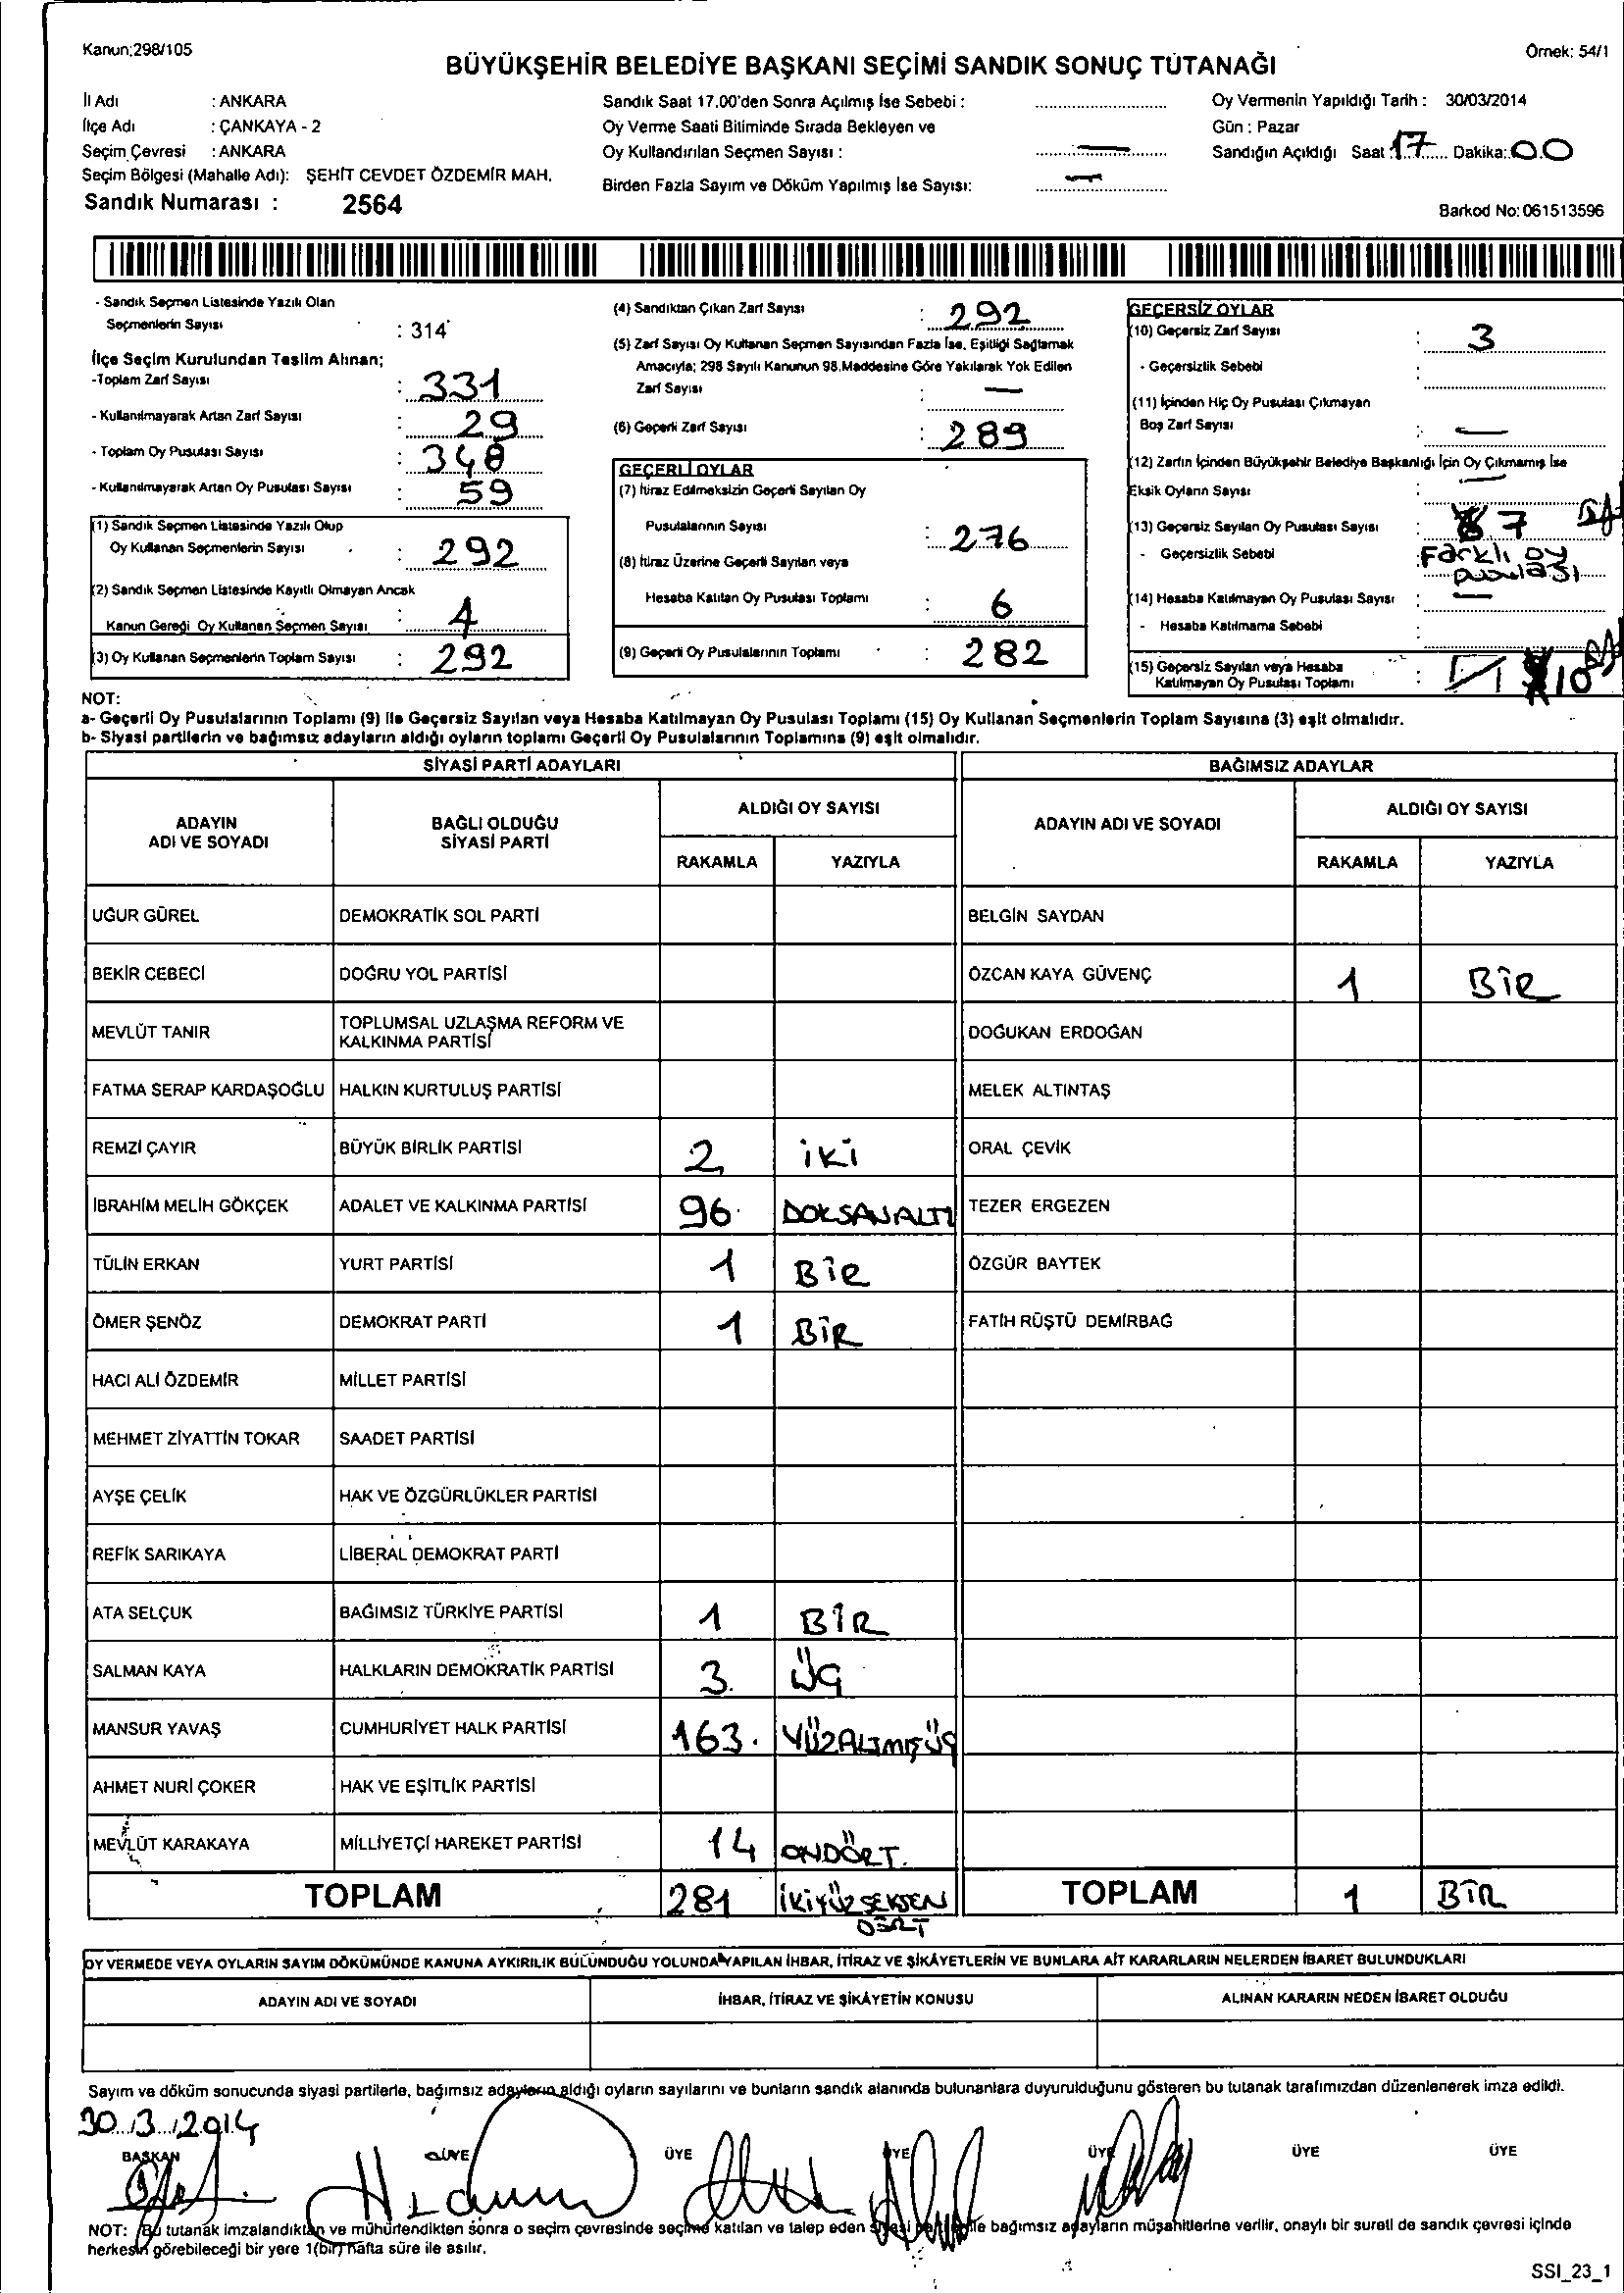 Kanun:298/105
Örnek: 54/1
BÜYÜKŞEHİR BELEDİYE BAŞKANI SEÇİMİ SANDIK SONUÇ TUTANAĞI
İl Adı : ANKARA
İlçe Adı : ÇANKAYA - 2
Seçim Çevresi : ANKARA
Seçim Bölgesi (Mahalle Adı): ŞEHİT CEVDET ÖZDEMİR MAH.
Sandık Numarası : 2564
Sandık Saat 17.00'den Sonra Açılmış İse Sebebi :
Oy Verme Saati Bitiminde Sırada Bekleyen ve
Oy Kullandırılan Seçmen Sayısı : —
Birden Fazla Sayım ve Döküm Yapılmış İse Sayısı: —
Oy Vermenin Yapıldığı Tarih : 30/03/2014
Gün : Pazar
Sandığın Açıldığı Saat : 17 Dakika: 00
Barkod No: 061513596
- Sandık Seçmen Listesinde Yazılı Olan
Seçmenlerin Sayısı : 314
İlçe Seçim Kurulundan Teslim Alınan;
-Toplam Zarf Sayısı : 331
- Kullanılmayarak Artan Zarf Sayısı : 29
- Toplam Oy Pusulası Sayısı : 348
- Kullanılmayarak Artan Oy Pusulası Sayısı : 59
(1) Sandık Seçmen Listesinde Yazılı Olup
Oy Kullanan Seçmenlerin Sayısı : 292
(2) Sandık Seçmen Listesinde Kayıtlı Olmayan Ancak
Kanun Gereği Oy Kullanan Seçmen Sayısı :
(3) Oy Kullanan Seçmenlerin Toplam Sayısı : 292
(4) Sandıktan Çıkan Zarf Sayısı : 292
(5) Zarf Sayısı Oy Kullanan Seçmen Sayısından Fazla İse, Eşitliği Sağlamak
Amacıyla; 298 Sayılı Kanunun 98.Maddesine Göre Yakılarak Yok Edilen
Zarf Sayısı : —
(6) Geçerli Zarf Sayısı : 289
GEÇERLİ OYLAR
(7) İtiraz Edilmeksizin Geçerli Sayılan Oy
Pusulalarının Sayısı : 276
(8) İtiraz Üzerine Geçerli Sayılan veya
Hesaba Katılan Oy Pusulası Toplamı : 6
(9) Geçerli Oy Pusulalarının Toplamı : 282
GEÇERSİZ OYLAR
(10) Geçersiz Zarf Sayısı : 3
- Geçersizlik Sebebi :
(11) İçinden Hiç Oy Pusulası Çıkmayan
Boş Zarf Sayısı : —
(12) Zarfın İçinden Büyükşehir Belediye Başkanlığı İçin Oy Çıkmamış İse
Eksik Oyların Sayısı : —
(13) Geçersiz Sayılan Oy Pusulası Sayısı : 7
- Geçersizlik Sebebi : Farklı oy
pusulası
(14) Hesaba Katılmayan Oy Pusulası Sayısı : —
- Hesaba Katılmama Sebebi :
(15) Geçersiz Sayılan veya Hesaba
Katılmayan Oy Pusulası Toplamı : 10
NOT:
a- Geçerli Oy Pusulalarının Toplamı (9) ile Geçersiz Sayılan veya Hesaba Katılmayan Oy Pusulası Toplamı (15) Oy Kullanan Seçmenlerin Toplam Sayısına (3) eşit olmalıdır.
b- Siyasi partilerin ve bağımsız adayların aldığı oyların toplamı Geçerli Oy Pusulalarının Toplamına (9) eşit olmalıdır.
SİYASİ PARTİ ADAYLARI BAĞIMSIZ ADAYLAR
ADAYIN ADI VE SOYADI BAĞLI OLDUĞU SİYASİ PARTİ ALDIĞI OY SAYISI RAKAMLA YAZIYLA ADAYIN ADI VE SOYADI ALDIĞI OY SAYISI RAKAMLA YAZIYLA
UĞUR GÜREL DEMOKRATİK SOL PARTİ BELGİN SAYDAN
BEKİR CEBECİ DOĞRU YOL PARTİSİ ÖZCAN KAYA GÜVENÇ 1 BİR
MEVLÜT TANIR TOPLUMSAL UZLAŞMA REFORM VE KALKINMA PARTİSİ DOĞUKAN ERDOĞAN
FATMA SERAP KARDAŞOĞLU HALKIN KURTULUŞ PARTİSİ MELEK ALTINTAŞ
REMZİ ÇAYIR BÜYÜK BİRLİK PARTİSİ 2 iKi ORAL ÇEVİK
İBRAHİM MELİH GÖKÇEK ADALET VE KALKINMA PARTİSİ 96 DOKSANALTI TEZER ERGEZEN
TÜLİN ERKAN YURT PARTİSİ 1 BİR ÖZGÜR BAYTEK
ÖMER ŞENÖZ DEMOKRAT PARTİ 1 BİR FATİH RÜŞTÜ DEMİRBAĞ
HACI ALİ ÖZDEMİR MİLLET PARTİSİ
MEHMET ZİYATTİN TOKAR SAADET PARTİSİ
AYŞE ÇELİK HAK VE ÖZGÜRLÜKLER PARTİSİ
REFİK SARIKAYA LİBERAL DEMOKRAT PARTİ
ATA SELÇUK BAĞIMSIZ TÜRKİYE PARTİSİ 1 BİR
SALMAN KAYA HALKLARIN DEMOKRATİK PARTİSİ 3. ÜÇ
MANSUR YAVAŞ CUMHURİYET HALK PARTİSİ 163. YÜZALTMIŞÜÇ
AHMET NURİ ÇOKER HAK VE EŞİTLİK PARTİSİ
MEVLÜT KARAKAYA MİLLİYETÇİ HAREKET PARTİSİ 14 ONDÖRT.
TOPLAM 281 İKİYÜZSEKSEN DÖRT TOPLAM 1 BİR
OY VERMEDE VEYA OYLARIN SAYIM DÖKÜMÜNDE KANUNA AYKIRILIK BULUNDUĞU YOLUNDA YAPILAN İHBAR, İTİRAZ VE ŞİKÂYETLERİN VE BUNLARA AİT KARARLARIN NELERDEN İBARET BULUNDUKLARI
ADAYIN ADI VE SOYADI İHBAR, İTİRAZ VE ŞİKÂYETİN KONUSU ALINAN KARARIN NEDEN İBARET OLDUĞU
Sayım ve döküm sonucunda siyasi partilerle, bağımsız adayların aldığı oyların sayılarını ve bunların sandık alanında bulunanlara duyurulduğunu gösteren bu tutanak tarafımızdan düzenlenerek imza edildi.
30.3.2014
BAŞKAN ÜYE ÜYE ÜYE ÜYE ÜYE ÜYE
NOT: Bu tutanak imzalandıktan ve mühürlendikten sonra o seçim çevresinde seçime katılan ve talep eden siyasi parti ile bağımsız adayların müşahitlerine verilir, onaylı bir sureti de sandık çevresi içinde
herkesin görebileceği bir yere 1(bir) hafta süre ile asılır.
SSI_23_1